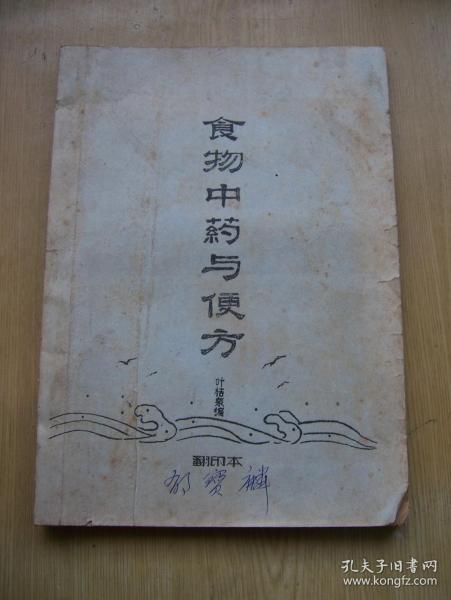 食物中药与便方
叶桔泉编
翻印本
孔夫子旧书网
www.kongfz.com